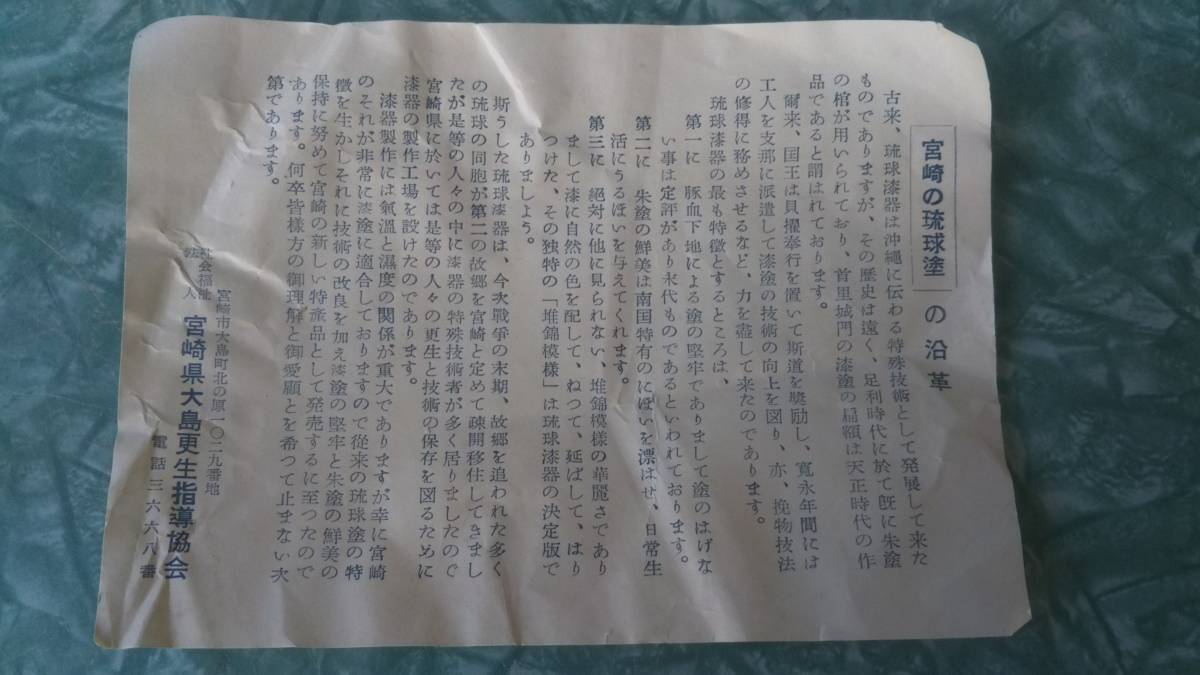 宮崎の琉球塗の沿革
古来、琉球漆器は沖縄に伝わる特殊技術として発展して来た
ものでありますが、その歴史は遠く、足利時代に於て既に朱塗
の棺が用いられており、首里城門の漆塗の扁額は天正時代の作
品であると謂はれております。
爾来、国王は貝擢奉行を置いて斯道を奬励し、寛永年間には
工人を支那に派遣して漆塗の技術の向上を図り、亦、挽物技法
の修得に務めさせるなど、力を盡して来たのであります。
琉球漆器の最も特徴とするところは、
第一に 豚血下地による塗の堅牢でありまして塗のはげな
い事は定評があり末代ものであるといわれております。
第二に 朱塗の鮮美は南国特有のにほいを漂はせ、日常生
活にうるほいを与えてくれます。
第三に 絶対に他に見られない、堆錦模様の華麗さであり
まして漆に自然の色を配して、ねつて、延ばして、はり
つけた、その独特の「堆錦模様」は琉球漆器の決定版で
ありましよう。
斯うした琉球漆器は、今次戰争の末期、故郷を追われた多く
の琉球の同胞が第二の故郷を宮崎と定めて疎開移住してきまし
たが是等の人々の中に漆器の特殊技術者が多く居りましたので
宮崎県に於いては是等の人々の更生と技術の保存を図るために
漆器の製作工場を設けたのであります。
漆器製作には氣溫と濕度の関係が重大でありますが幸に宮崎
のそれが非常に漆塗に適合しておりますので従来の琉球塗の特
徴を生かしそれに技術の改良を加え漆塗の堅牢と朱塗の鮮美の
保持に努めて宮崎の新しい特産品として発売するに至つたので
あります。何卒皆様方の御理解と御愛顧とを希つて止まない次
第であります。
宮崎市大島町北の原一〇二九番地
社会福祉法人 宮崎県大島更生指導協会
電話三六六八番